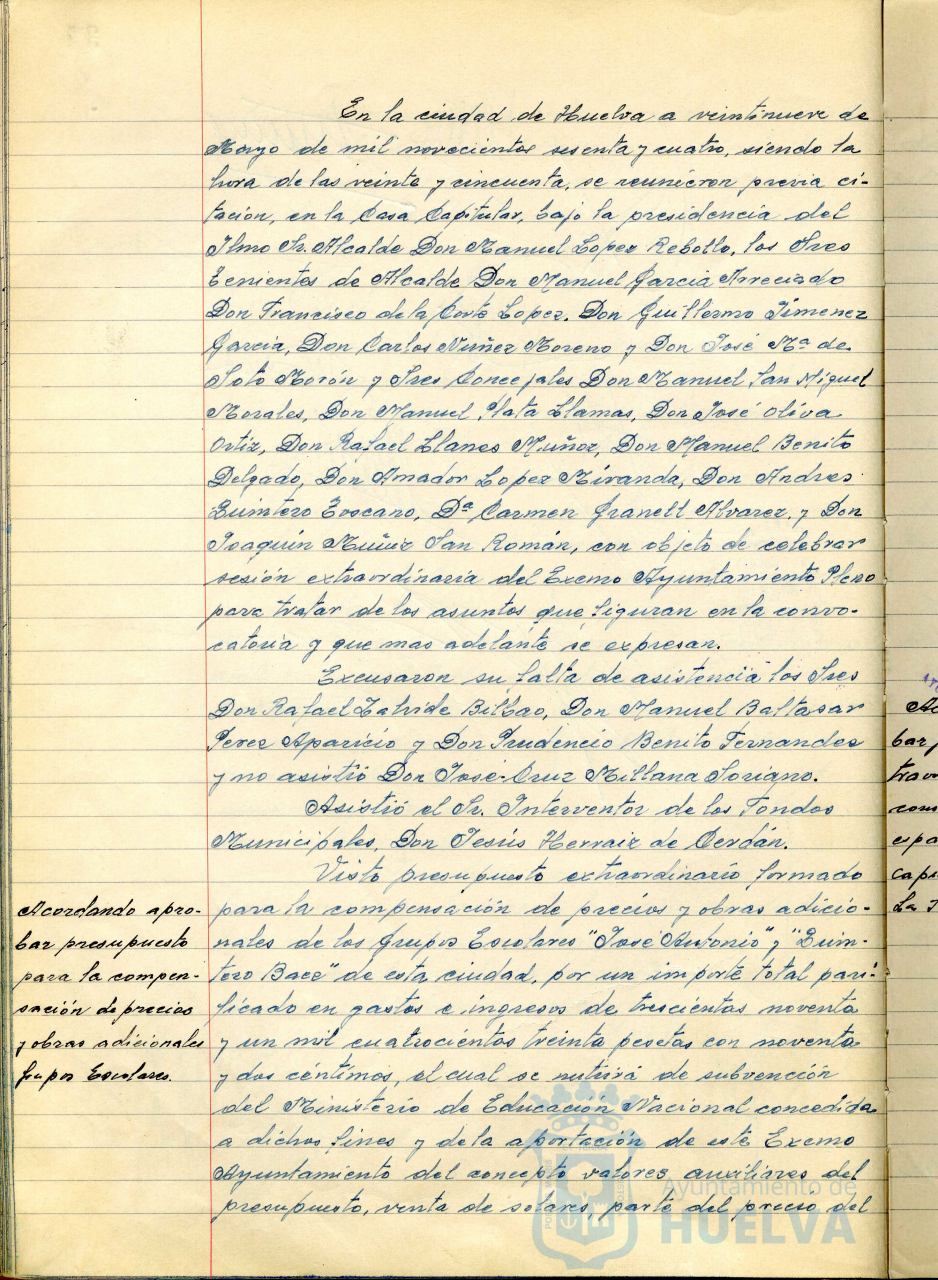 En la ciudad de Huelva a veintinueve de
Mayo de mil novecientos sesenta y cuatro, siendo la
hora de las veinte y cincuenta, se reunieron previa ci-
tación, en la Casa Capitular, bajo la presidencia del
Ilmo Sr. Alcalde Don Manuel Lopez Rebollo, los Sres
Tenientes de Alcalde Don Manuel Garcia Arreciado
Don Francisco de la Corte Lopez. Don Guillermo Jimenez
Garcia, Don Carlos Nuñez Moreno y Don José Mª de
Soto Morón y Sres Concejales Don Manuel San Miguel
Morales, Don Manuel Plata Llamas, Don José Oliva
Ortiz, Don Rafael Llanes Muñoz, Don Manuel Benito
Delgado, Don Amador Lopez Miranda, Don Andres
Quintero Toscano, Dª Carmen Granell Alvarez y Don
Joaquín Muñiz San Román, con objeto de celebrar
sesión extraordinaria del Excmo Ayuntamiento Pleno
para tratar de los asuntos que figuran en la convo-
catoria y que mas adelante se expresan.
Excusaron su falta de asistencia los Sres
Don Rafael Zalvide Bilbao, Don Manuel Baltasar
Perez Aparicio y Don Prudencio Benito Fernandes
y no asistió Don José-Cruz Millana Soriano.
Asistió el Sr. Interventor de los Fondos
Municipales, Don Jesús Herraiz de Cerdán.
Visto presupuesto extraordinario formado
para la compensación de precios y obras adicio-
nales de los Grupos Escolares "José Antonio" y "Quin-
tero Baez" de esta ciudad, por un importe total pari-
ficado en gastos e ingresos de trescientas noventa
y un mil cuatrocientas treinta pesetas con noventa
y dos céntimos, el cual se nutrirá de subvención
del Ministerio de Educación Nacional concedida
a dichos fines y de la aportación de este Excmo
Ayuntamiento del concepto valores auxiliares del
presupuesto, venta de solares, parte del precio del
Acordando apro-
bar presupuesto
para la compen-
sación de precios
y obras adicionales
Grupos Escolares.
bar
espa
La
Ayuntamiento de
HUELVA